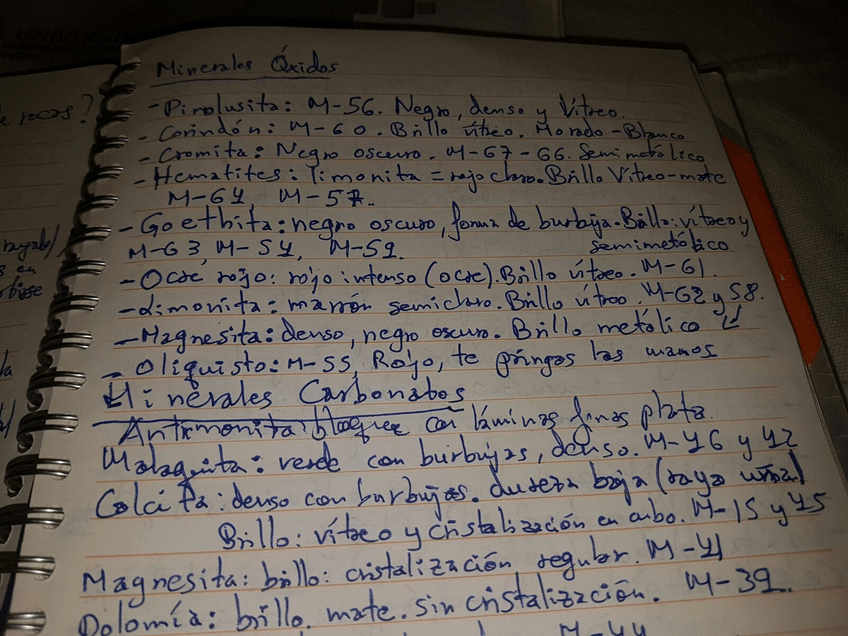 UNIVERSI
Minerales Óxidos
- Pirolusita: M-56. Negro, denso y Vítreo.
- Corindón: M-60. Brillo vítreo. Morado-Blanco
- Cromita: Negro oscuro. M-67-66. Semimetálico
- Hematites: limonita = rojo claro. Brillo Vítreo-mate
M-64, M-57.
- Goethita: negro oscuro, forma de burbuja. Brillo: vítreo y
semimetálico
M-63, M-54, M-59.
- Ocre rojo: rojo intenso (ocre). Brillo vítreo. M-61.
- Limonita: marrón semiclaro. Brillo vítreo. M-62 y 58.
- Magnesita: denso, negro oscuro. Brillo metálico
- Oliquisto: M-55, Rojo, te pringas las manos
Minerales Carbonatos
Antimonita: bloque con láminas finas plata.
Malaquita: verde con burbujas, denso. M-46 y 42
Calcita: denso con burbujas. dureza baja (raya uña)
Brillo: vítreo y cristalización en cubo. M-15 y 45
Magnesita: brillo: cristalización regular. M-41
Dolomía: brillo. mate. sin cristalización. M-39.
M-44
de rocas?